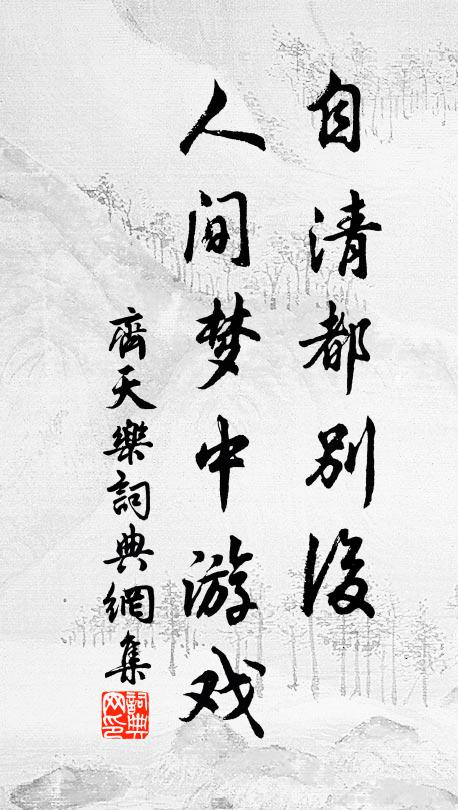 自清都别後
人间梦中游戏
齊天樂詞典網集
詞典网印